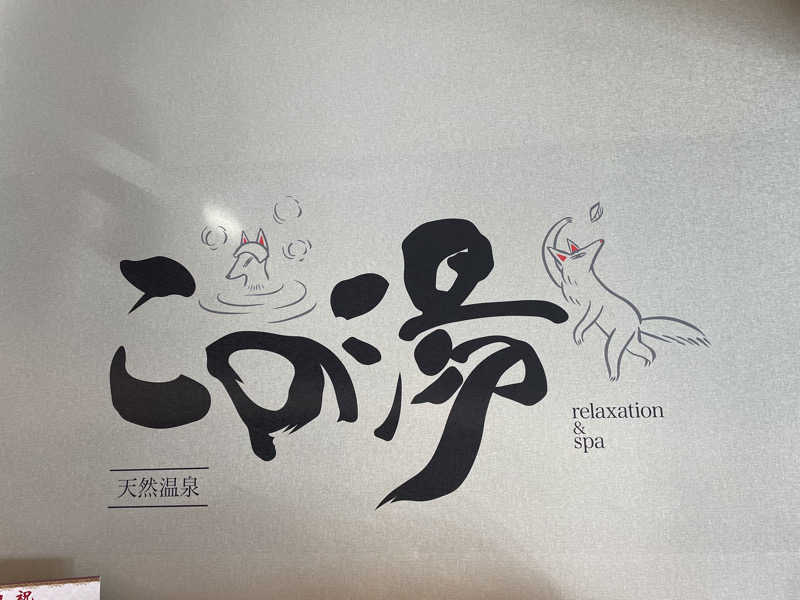 この湯
天然温泉
relaxation
&
spa
祝